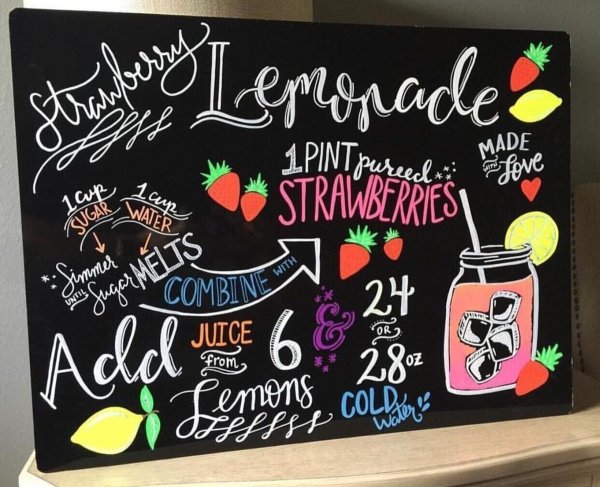 Strawberry Lemonade
MADE
WITH
Love
1 PINT pureed
STRAWBERRIES
1 cup
SUGAR
1 cup
WATER
Simmer
UNTIL
Sugar MELTS
COMBINE WITH
Add JUICE
from
6
Lemons
&
24
OR
28oz
COLD
Water!!